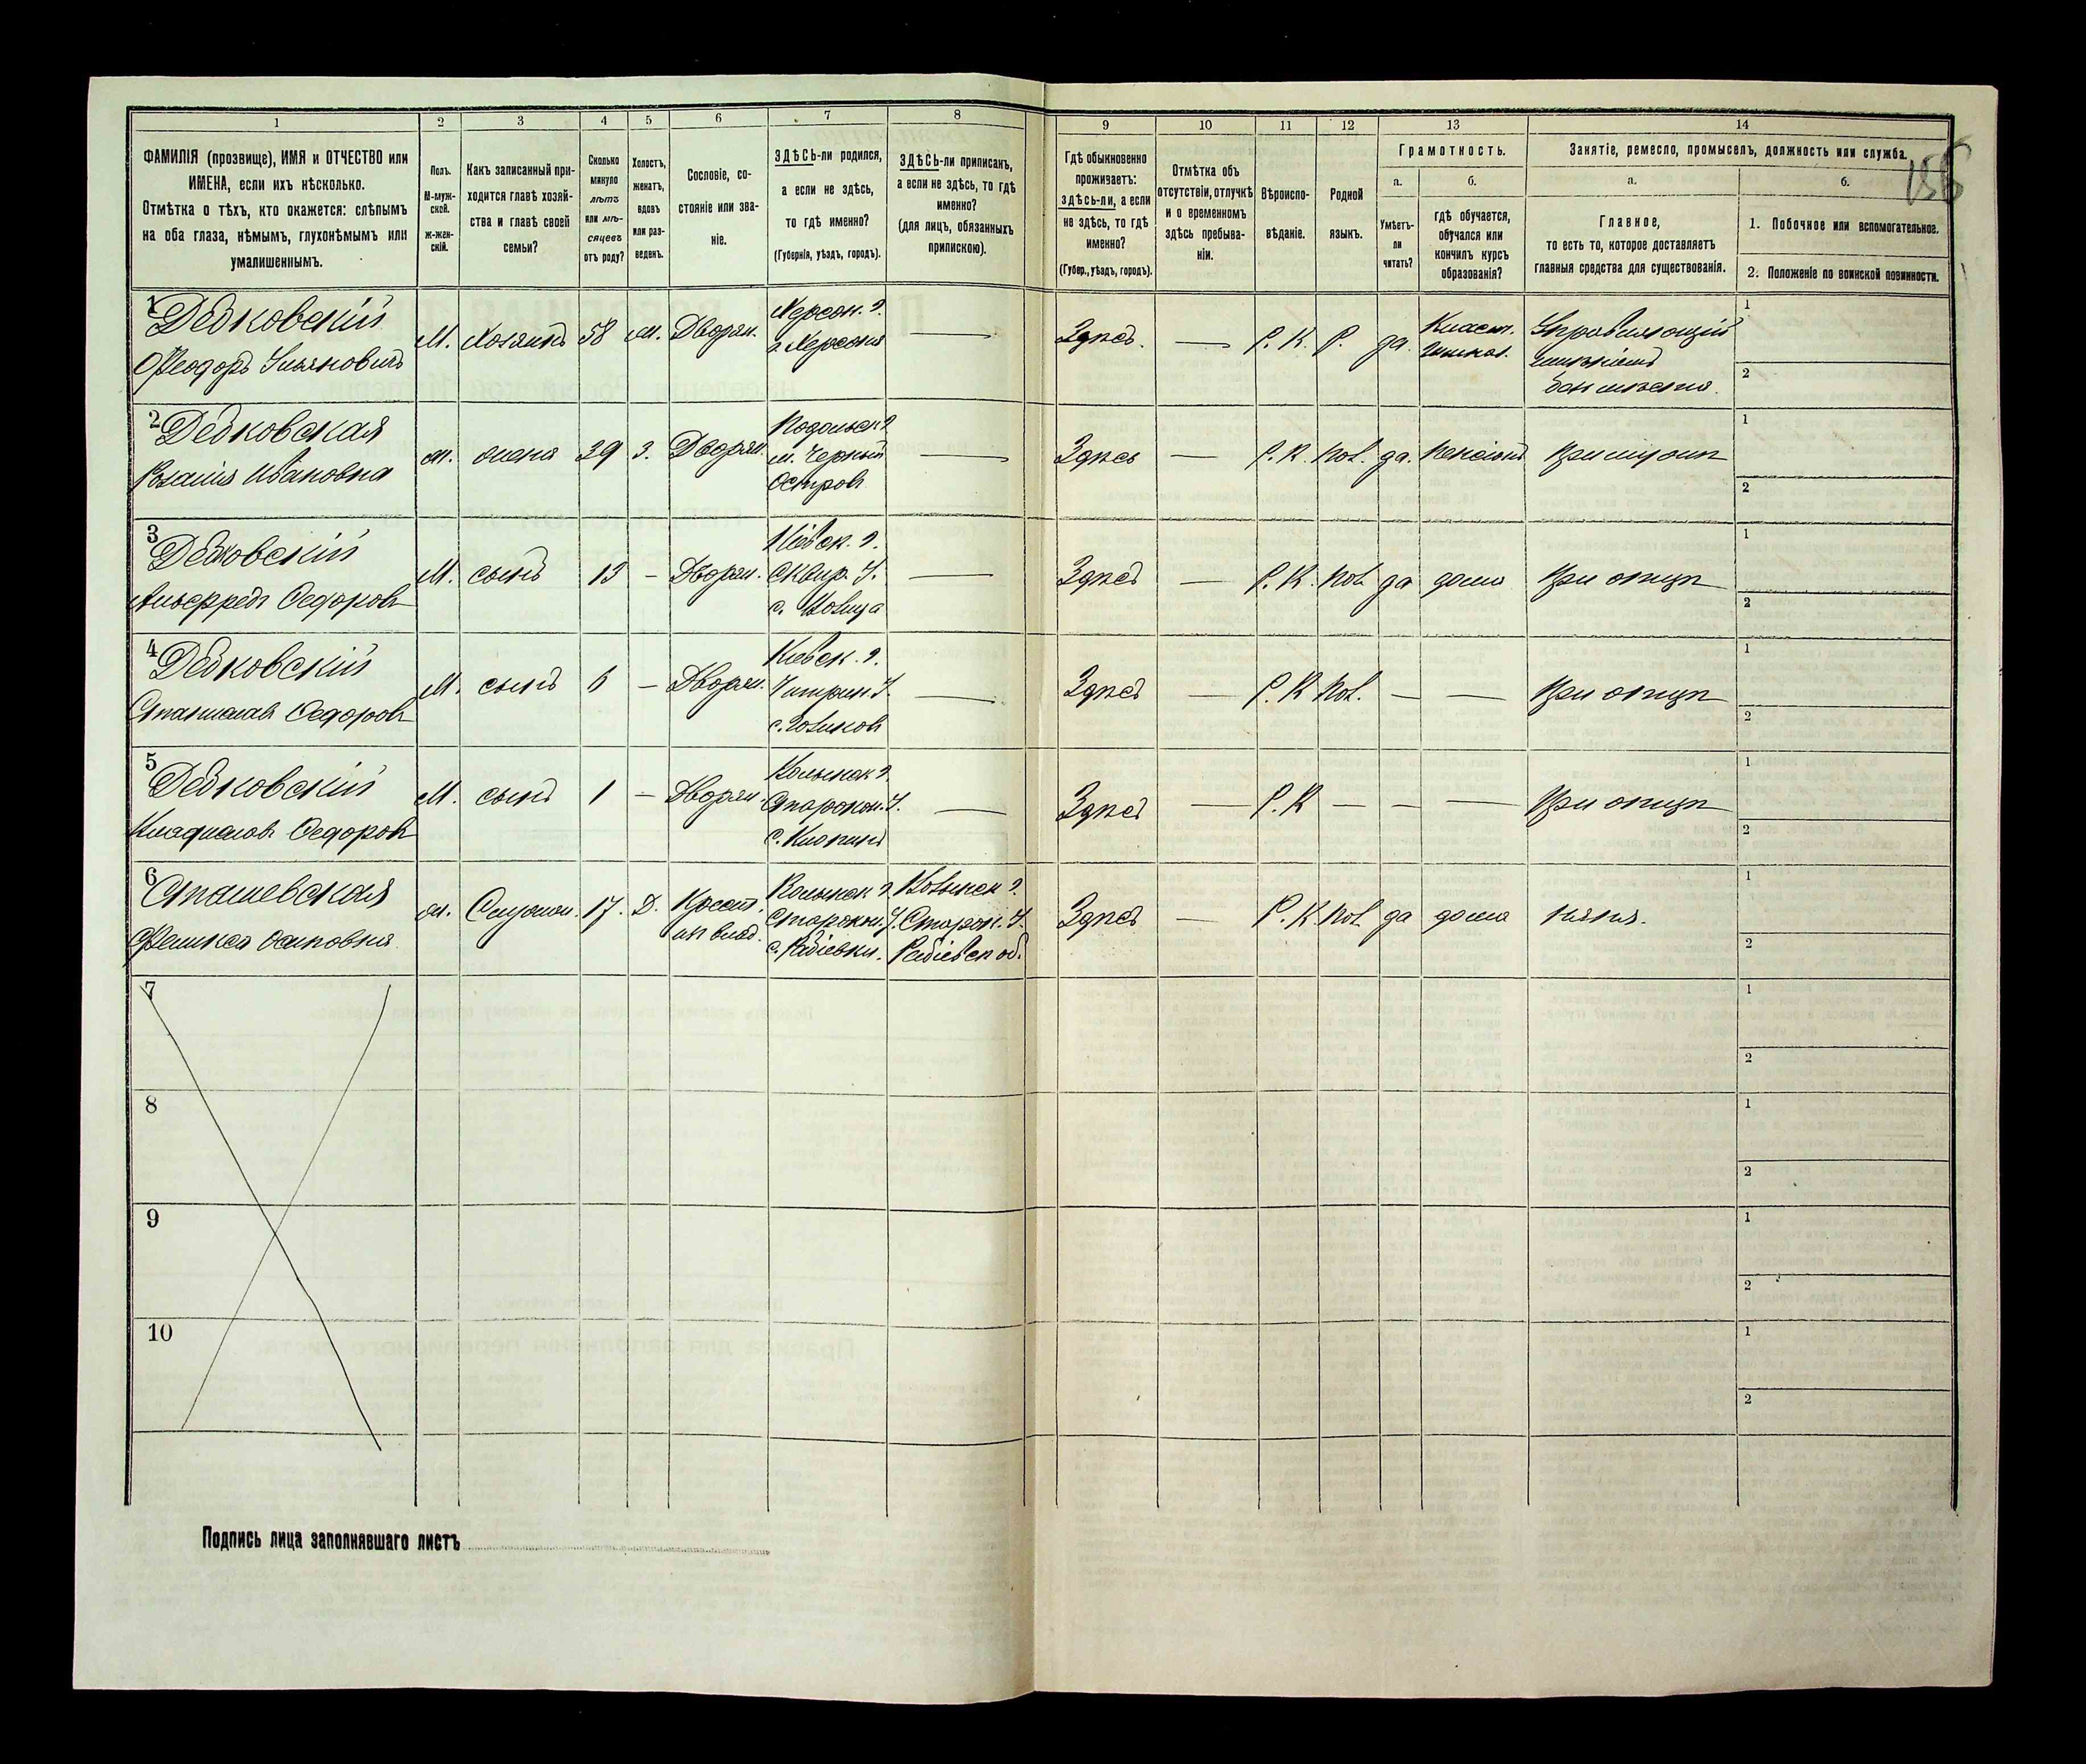 1
2
3
4
5
6
7
8
9
10
11
12
13
14
ФАМИЛІЯ (прозвище), ИМЯ и ОТЧЕСТВО или
ИМЕНА, если ихъ нѣсколько.
Отмѣтка о тѣхъ, кто окажется: слѣпымъ
на оба глаза, нѣмымъ, глухонѣмымъ или
умалишеннымъ.
Полъ.
М-муж-
ской.
Ж-жен-
скій.
Какъ записанный при-
ходится главѣ хозяй-
ства и главѣ своей
семьи?
Сколько
минуло
лѣтъ
или мѣ-
сяцевъ
отъ роду?
Холостъ,
женатъ,
вдовъ
или раз-
веденъ.
Сословіе, со-
стояніе или зва-
ніе.
ЗДѢСЬ-ли родился,
а если не здѣсь,
то гдѣ именно?
(Губернія, уѣздъ, городъ).
ЗДѢСЬ-ли приписанъ,
а если не здѣсь, то гдѣ
именно?
(для лицъ, обязанныхъ
припискою).
Гдѣ обыкновенно
проживаетъ:
здѣсь-ли, а если
не здѣсь, то гдѣ
именно?
(Губер., уѣздъ, городъ).
Отмѣтка объ
отсутствіи, отлучкѣ
и о временномъ
здѣсь пребыва-
ніи.
Вѣроиспо-
вѣданіе.
Родной
языкъ.
Грамотность.
а.
Умѣетъ-
ли
читать?
б.
гдѣ обучается,
обучался или
кончилъ курсъ
образованія?
Занятіе, ремесло, промыселъ, должность или служба.
а.
Главное,
то есть то, которое доставляетъ
главныя средства для существованія.
б.
1. Побочное или вспомогательное.
2. Положеніе по воинской повинности.
1
Дедковскій
Феодоръ Ульяновичъ
М. Хозяинъ 58 ж. Дворян.
Херсон. г.
г. Херсонъ
Здѣсь. Р. К. Р. да.
Управляющій
имѣніемъ
1
2
2
Дедковская
Ивановна
ж. жена 39 З. Дворян.
Подольск г
м. Черный
Островъ
Здѣсь Р. К. Пол. да. Пенсіонъ При мужѣ
1
2
3
Дедковскій
Альфредъ Федоровъ
М. сынъ 13 Дворян.
Кіевск. г.
Сквир. У.
Здѣсь Р. К. Пол да дома При отцѣ
1
2
4
Дедковскій
Станиславъ Федоровъ
М. сынъ 6 Дворян.
Кіевск. г.
Чигрин У.
Здѣсь Р. К Пол. При отцѣ
1
2
5
Дедковскій
Владиславъ Федоровъ
М. сынъ 1 Дворян.
Волынск г.
Старокон. У.
Здѣсь Р. К При отцѣ
1
2
6
Сташевская
Осиповна
ж. 17. Д. Крест.
Волынск г.
Старокон. У.
Волынск г.
Старок. У.
Здѣсь Р. К. Пол да дома няня.
1
2
7
1
2
8
1
2
9
1
2
10
1
2
Подпись лица заполнявшаго листъ